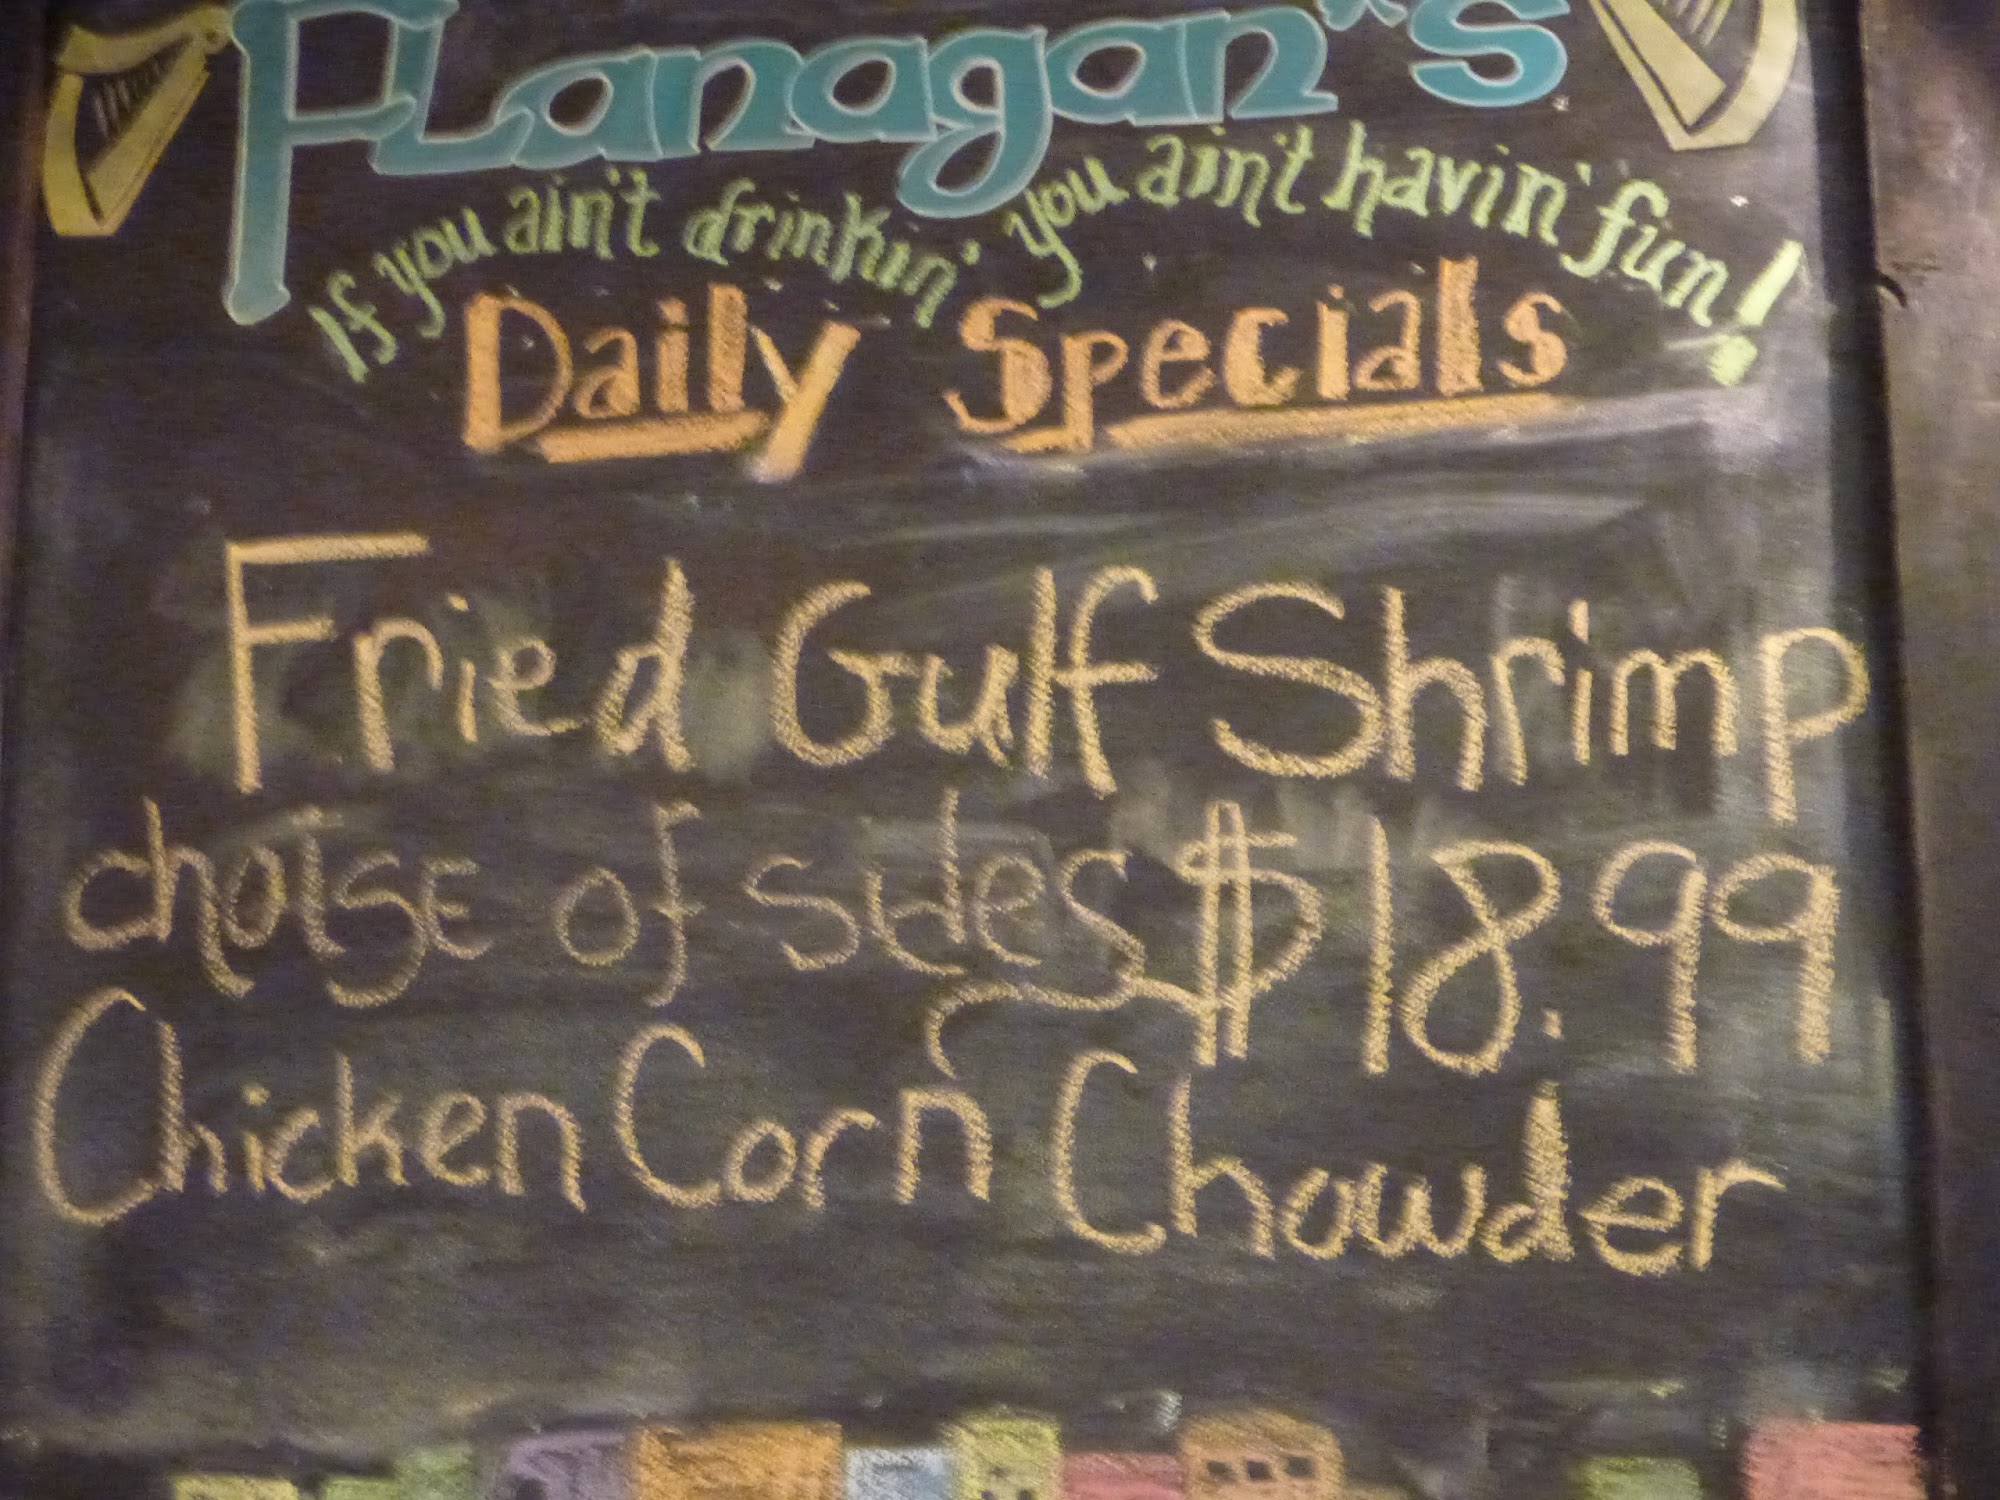 Flanagan's
If you ain't drinkin' you ain't havin' fun!
Daily Specials
Fried Gulf Shrimp
choise of sides $18.99
Chicken Corn Chowder